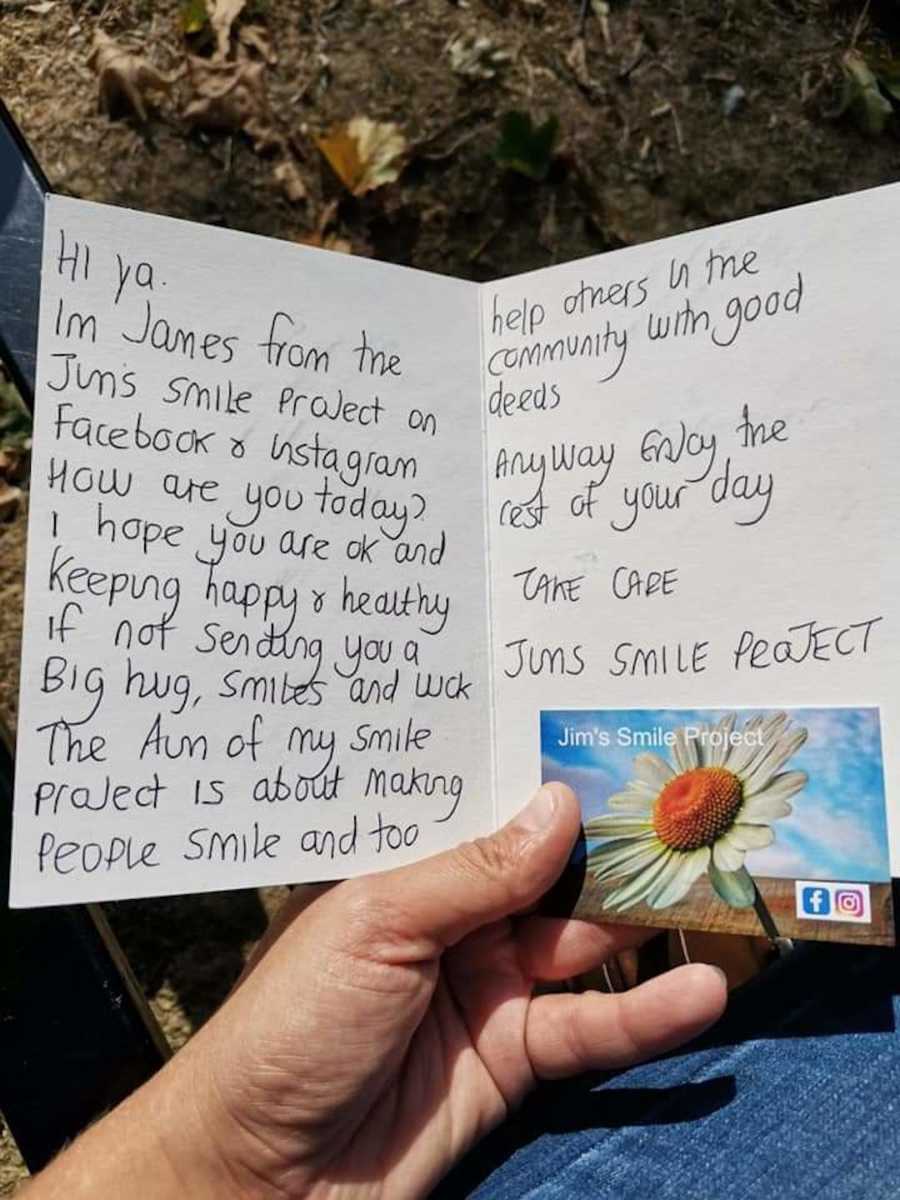 HI ya.
Im James from the
Jim's smile Project on
Facebook & Instagram
How are you today?
I hope you are ok and
keeping happy & healthy
If not sending you a
Big hug, smiles and luck
The Aim of my smile
project is about making
people smile and too
help others in the
community with good
deeds
Anyway Enjoy the
rest of your day
TAKE CARE
JIMS SMILE PROJECT
Jim's Smile Project